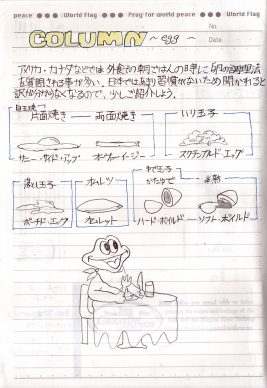 peace World Flag Pray for world peace World Flag
No.
Date
COLUMN ~egg~
アメリカ・カナダなどでは外食の朝ごはんの時に卵の調理法
を質問される事が多い。日本では余り習慣がないため聞かれると
訳が分からなくなるので、少しご紹介しよう。
目玉焼き
片面焼き 両面焼き いり玉子
サニー・サイド・アップ オーヴァーイージー スクランブルド・エッグ
落し玉子 オムレツ ゆで玉子
かたゆで 半熟
ポーチド・エッグ オムレット ハード・ボイルド ソフト・ボイルド